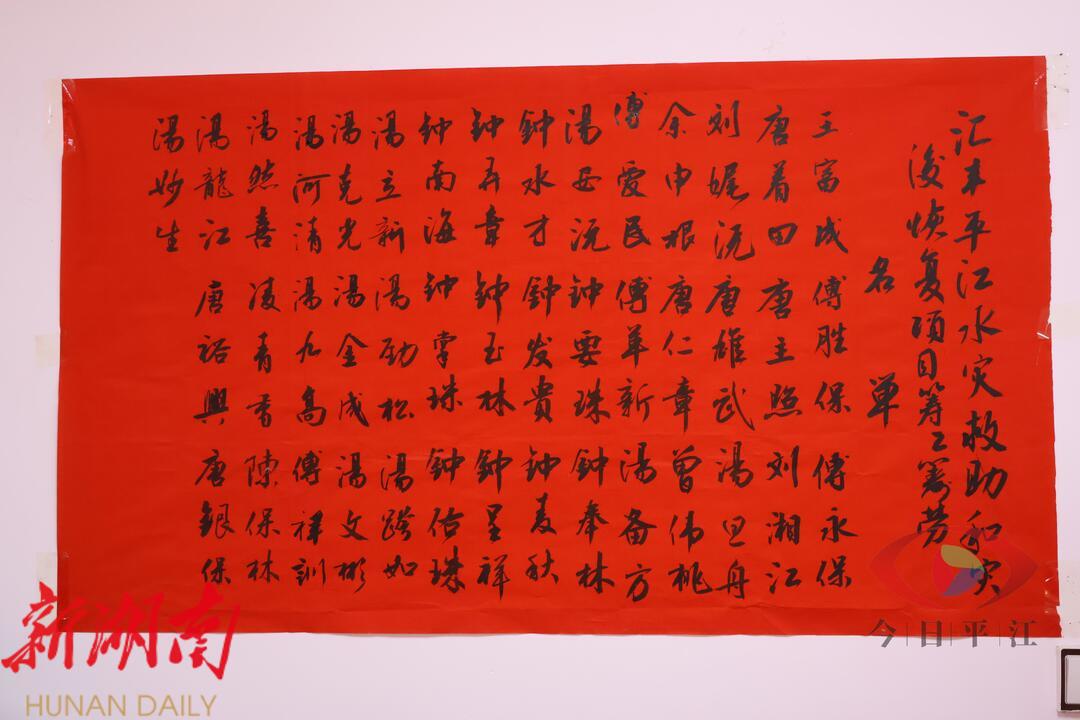 汇丰平江水灾救助和灾
后恢复项目筹工筹劳
名单
王富成 傅胜保 傅永保
唐着田 唐主照 刘湘江
刘娓沅 唐雄武 汤旦舟
余申根 唐仁章 曾伟桃
傅爱民 傅革新 汤备方
汤岳沅 钟要珠 钟奉林
钟水才 钟发贵 钟麦秋
钟弄章 钟玉林 钟呈祥
钟南海 钟掌珠 钟佑珠
湯立新 湯劲松 湯跨如
湯克光 湯金成 湯文彬
湯河清 湯九高 傅祥訓
湯然喜 凌青香 陈保林
湯龍江 唐裕興 唐銀保
湯妙生
新湖南
HUNAN DAILY
今日平江